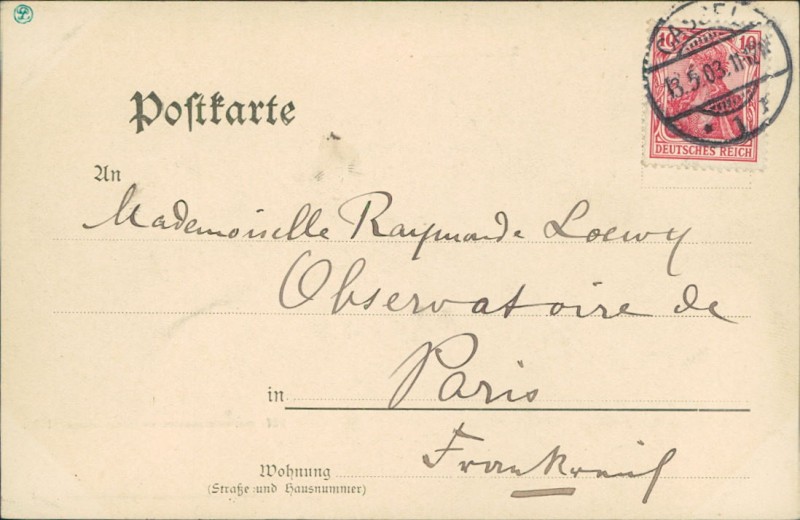 CASSEL
13.5.03. 11-12V
* 1 r
10 10
DEUTSCHES REICH
Postkarte
An
Mademoiselle Raymonde Loewy
Observatoire de
in Paris
Wohnung Frankreich
(Straße und Hausnummer)